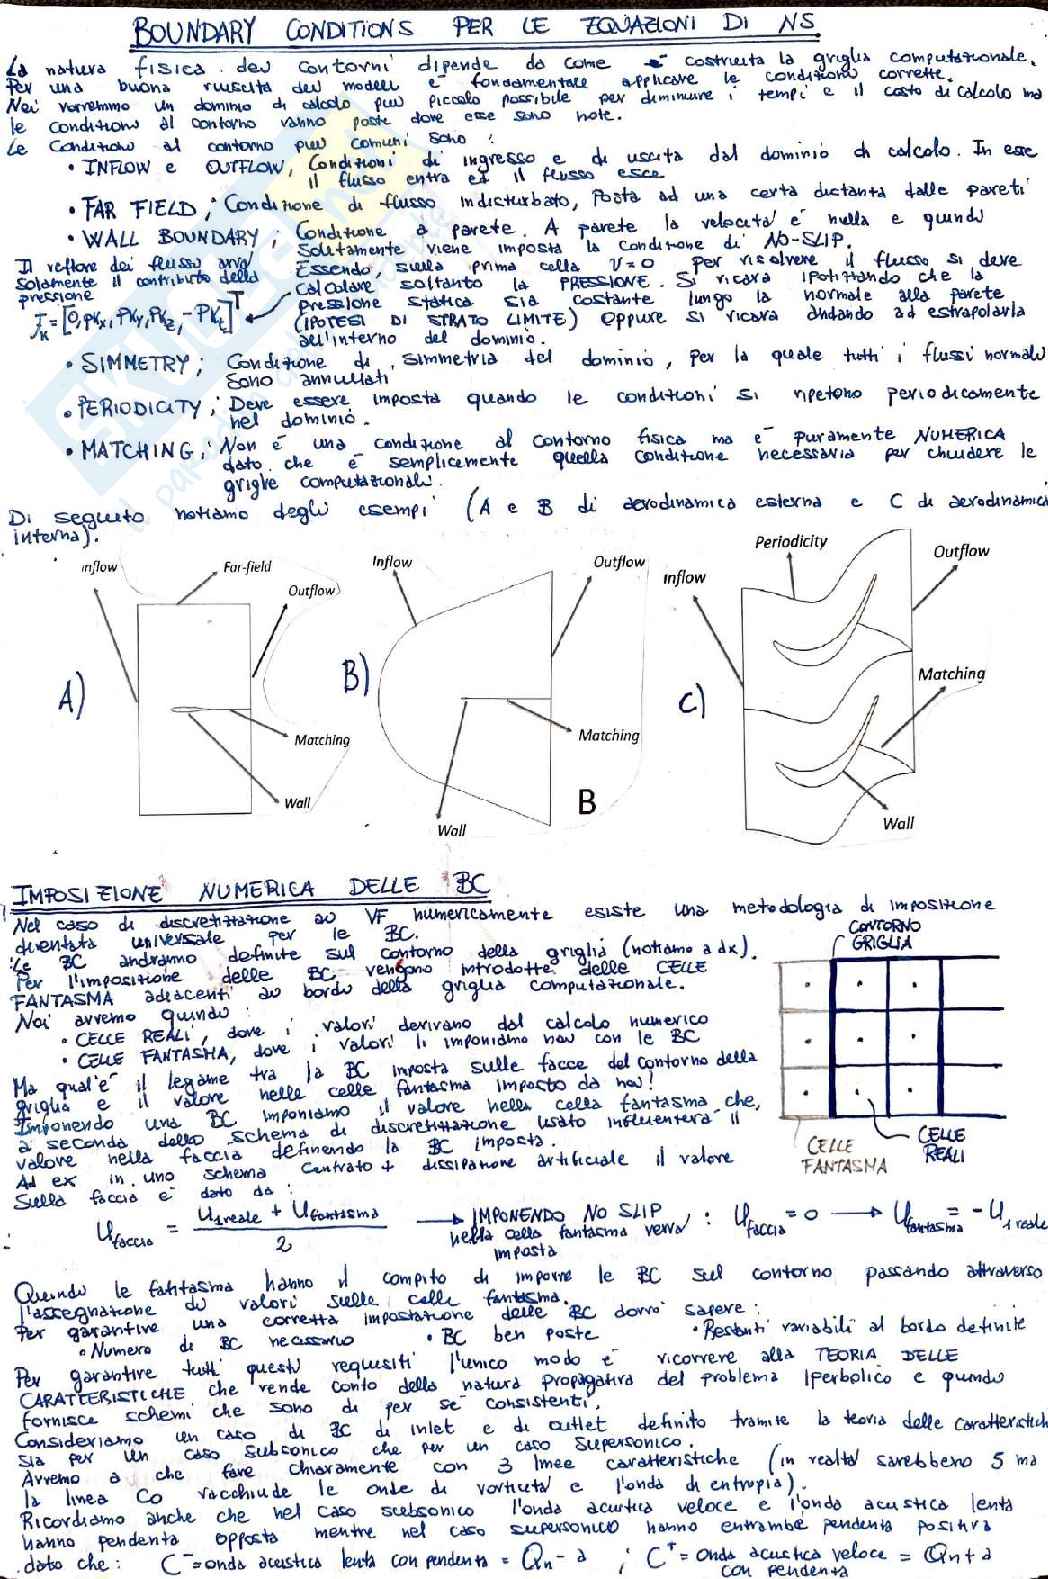 BOUNDARY CONDITIONS PER LE EQUAZIONI DI NS
La natura fisica dei contorni dipende da come è costruita la griglia computazionale.
Per una buona riuscita dei modelli è fondamentale applicare le condizioni corrette.
Noi vorremmo un dominio di calcolo più piccolo possibile per diminuire i tempi e il costo di calcolo ma
le condizioni al contorno vanno poste dove esse sono note.
Le condizioni al contorno più comuni sono:
• INFLOW e OUTFLOW, Condizioni di ingresso e di uscita dal dominio di calcolo. In esse
il flusso entra ed il flusso esce
• FAR FIELD; Condizione di flusso indisturbato, posta ad una certa distanza dalle pareti
• WALL BOUNDARY; Condizione a parete. A parete la velocità è nulla e quindi
Solitamente viene imposta la condizione di NO-SLIP.
Il vettore dei flussi avrà
solamente il contributo della
pressione
Essendo, sulla prima cella V=0 per risolvere il flusso si deve
calcolare soltanto la PRESSIONE. Si ricava ipotizzando che la
pressione statica sia costante lungo la normale alla parete
(IPOTESI DI STRATO LIMITE) oppure si ricava andando ad estrapolarla
all'interno del dominio.
F_K = [0, PKx, PKy, PKz, -PKt]^T
• SIMMETRY; Condizione di simmetria del dominio, per la quale tutti i flussi normali
sono annullati
• PERIODICITY; Deve essere imposta quando le condizioni si ripetono periodicamente
nel dominio.
• MATCHING; Non è una condizione al contorno fisica ma è puramente NUMERICA
dato che è semplicemente quella condizione necessaria per chiudere le
griglie computazionali.
Di seguito notiamo degli esempi (A e B di aerodinamica esterna e C di aerodinamica
interna).
A)
Inflow
Far-field
Outflow
Matching
Wall
B)
Inflow
Outflow
Matching
Wall
B
C)
Periodicity
Inflow
Outflow
Matching
Wall
IMPOSIZIONE NUMERICA DELLE BC
Nel caso di discretizzazione ai VF numericamente esiste una metodologia di imposizione
diventata universale per le BC.
Le BC andranno definite sul contorno della griglia (notiamo a dx).
Per l'imposizione delle BC vengono introdotte delle CELLE
FANTASMA adiacenti al bordo della griglia computazionale.
Noi avremo quindi:
• CELLE REALI, dove i valori derivano dal calcolo numerico
• CELLE FANTASMA, dove i valori li imponiamo noi con le BC
Ma qual'è il legame tra la BC imposta sulle facce del contorno della
griglia e il valore nelle celle fantasma imposto da noi!
Imponendo una BC imponiamo il valore nella cella fantasma che,
a seconda dello schema di discretizzazione usato influenzerà il
valore nella faccia definendo la BC imposta.
Ad ex in uno schema centrato + dissipazione artificiale il valore
sulla faccia è dato da:
CONTORNO
GRIGLIA
CELLE
FANTASMA
CELLE
REALI
U_faccia = (U_1reale + U_fantasma) / 2 → IMPONENDO NO SLIP
nella cella fantasma verrà
imposta
: U_faccia = 0 → U_fantasma = - U_1reale
Quindi le fantasma hanno il compito di imporre le BC sul contorno passando attraverso
l'assegnazione di valori sulle celle fantasma.
Per garantire una corretta impostazione delle BC dovrò sapere:
• Numero di BC necessario • BC ben poste • Restanti variabili al bordo definite
Per garantire tutti questi requisiti l'unico modo è ricorrere alla TEORIA DELLE
CARATTERISTICHE che rende conto della natura propagativa del problema Iperbolico e quindi
fornisce schemi che sono di per sé consistenti.
Consideriamo un caso di BC di inlet e di outlet definito tramite la teoria delle caratteristiche
sia per un caso subsonico che per un caso supersonico.
Avremo a che fare chiaramente con 3 linee caratteristiche (in realtà sarebbero 5 ma
la linea C0 racchiude le onde di vorticità e l'onda di entropia).
Ricordiamo anche che nel caso subsonico l'onda acustica veloce e l'onda acustica lenta
hanno pendenza opposta mentre nel caso supersonico hanno entrambe pendenza positiva
dato che: C⁻ = onda acustica lenta con pendenza = Qn - a ; C⁺ = onda acustica veloce = Qn + a
con pendenza